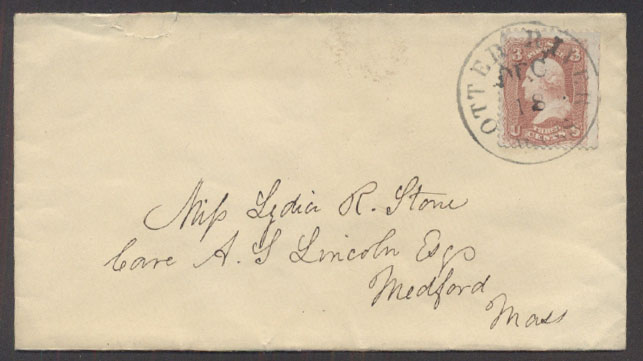 OTTER RIVER
DEC
18
3 3
U S
CENTS
Miss Lydia R. Stone
Care A. S Lincoln Esq
Medford
Mass